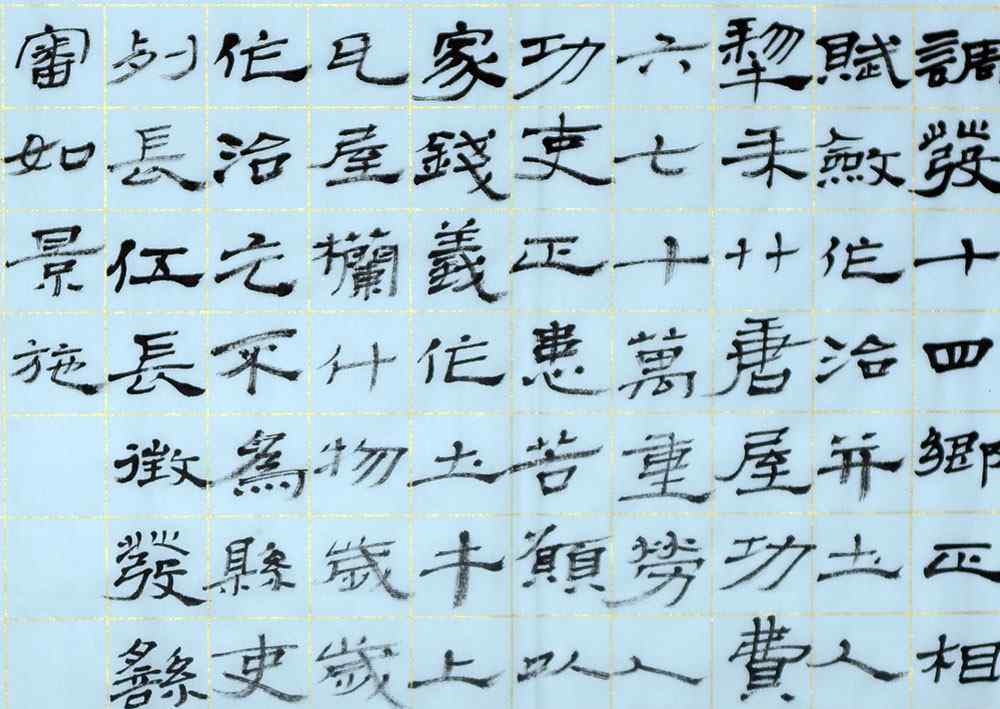 調發十四鄉正相
賦斂作治并土人
犂耒艹蓎屋功費
六七十萬重勞人
功吏正患苦願以
家錢義作土牛上
瓦屋欄什物歲歲
作治乞不為縣吏
列長伍長徵發繇
審如景施